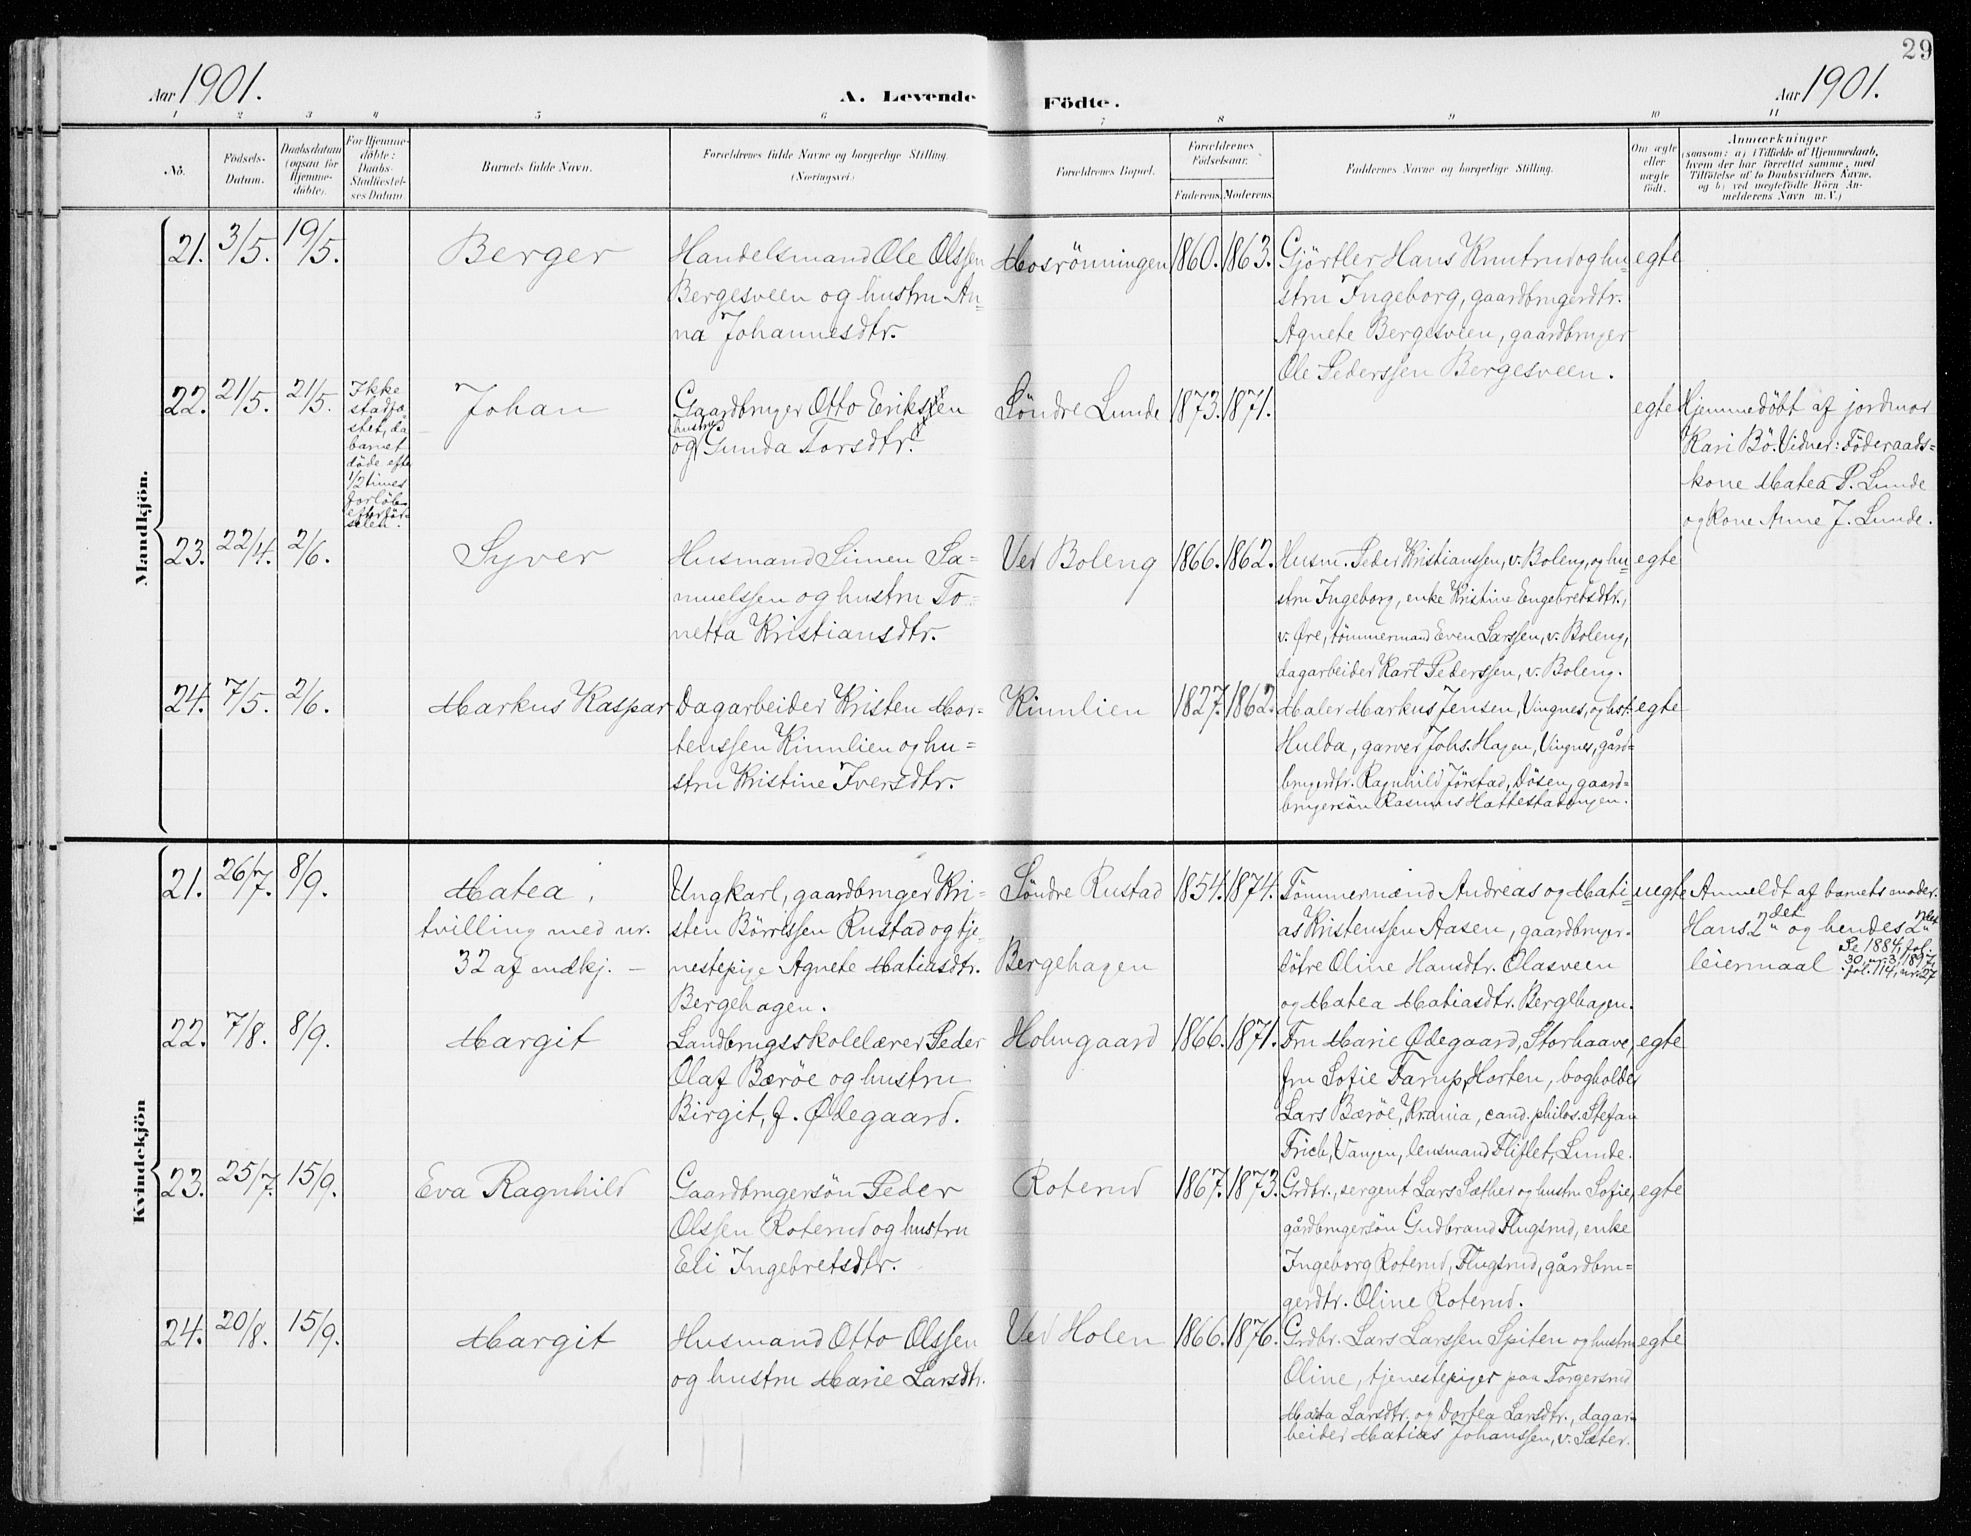 29
Aar 1901.
A. Levende Födte.
Aar 1901.
1 2 3 4 5 6 7 8 9 10 11
No.
Födsels-
Datum.
Daabsdatum
(ogsaa for
Hjemme-
döbte).
For Hjemme-
döbte:
Daabs-
Stadfæstel-
ses Datum.
Barnets fulde Navn.
Forældrenes fulde Navne og borgerlige Stilling.
(Næringsvei)
Forældrenes Bopæl.
Forældrenes
Födselsaar.
Faderens. Moderens.
Faddernes Navne og borgerlige Stilling.
Om ægte
eller
uægte
födt.
Anmærkninger
(saasom: a) i Tilfælde af Hjemmedaab,
hvem der har forrettet samme, med
Tilföielse af to Daabsvidners Navne,
og b) ved uægtefödte Börn An-
melderens Navn m. V.)
Mandkjön.
21. 3/5. 19/5.
Berger
Handelsmand Ole Olssen
Bergesveen og hustru An=
na Johannesdtr.
Mosrönningen
1860. 1863.
Gjörtler Hans Knutrud og hu=
stru Ingeborg, gaardbrugerdtr.
Agnete Bergesveen, gaardbruger
Ole Pederssen Bergesveen.
egte
22. 21/5. 21/5.
Ikke
stadfæ
stet, da
barnet
döde efter
1/2 times
forlöb
efter föd-
selen.
Johan
Gaardbruger Otto Erikssen
hustru
og Gunda Torsdtr.
Söndre Lunde
1873. 1871.
egte
Hjemmedöbt af jordmor
Kari Bö. Vidner: Föderaads=
kone Matea P. Lunde
og kone Anne J. Lunde.
23. 22/4. 2/6.
Syver
Husmand Simen Sa=
muelssen og hustru To=
netta Kristiansdtr.
Ved Boleng
1866. 1862.
Husm. Peder Kristianssen, v. Boleng, og hu=
stru Ingeborg, enke Kristine Engebretsdtr.,
v. Øre, tömmermand Even Larssen, v. Boleng,
dagarbeider Karl Pederssen, v. Boleng.
egte
24. 7/5. 2/6.
Markus Kaspar
Dagarbeider Kristen Mor=
tenssen Kinnlien og hu=
stru Kristine Iversdtr.
Kinnlien
1827. 1862.
Maler Markus Jensen, Vingnes, og hst.
Hulda, garver Johs. Hagen, Vingnes, gård=
brugerdtr. Ragnhild Jörstad, Dösen, gaard=
brugersön Rasmus Hattestadengen.
egte
Kvindekjön
21. 26/7. 8/9.
Matea,
tvilling med nr.
32 af mdkj. –
Ungkarl, gaardbruger Kri=
sten Börressen Rustad og tje=
nestepige Agnete Matiasdtr.
Bergehagen.
Söndre Rustad
Bergehagen
1854. 1874.
Tömmermænd Andreas og Mati=
as Kristenssen Aasen, gaardbruger-
döfre Oline Hansdtr. Olasveen
og Matea Matiasdtr. Bergehagen.
uegte
Anmeldt af barnets moder.
Hans 2det og hendes 2det
leiermaal
Se 1884, fol.
30, nr. 3, 1897,
fol. 114, nr. 27
22. 7/8. 8/9.
Margit
Landbrugsskolelærer Peder
Olaf Bærøe og hustru
Birgit, f. Ødegaard.
Holmgaard
1866. 1871.
Fru Marie Ødegaard, Storhaave,
fru Sofie Tarup, Horten, bogholder
Lars Bærøe, Krania, cand. philos. Stefan
Frich, Vangen, lensmand Fliflet, Lunde.
egte
23. 25/7. 15/9.
Eva Ragnhild
Gaardbrugersön Peder
Olssen Roterud og hustru
Eli Ingebretsdtr.
Roterud
1867. 1873.
Grdbr., sergent Lars Sæther og hustru Sofie,
gårdbrugersön Gudbrand Flugsrud, enke
Ingeborg Roterud, Flugsrud, gårdbru=
gerdtr. Oline Roterud.
egte
24. 20/8. 15/9.
Margit
Husmand Otto Olssen
og hustru Marie Larsdtr.
Ved Holen
1866. 1876.
Grdbr. Lars Larssen Spiten og hustru
Oline, tjenestepiger paa Torgersrud
Marta Larsdtr. og Dortea Larsdtr., dagar=
beider Matias Johanssen, v. Sæter.
egte